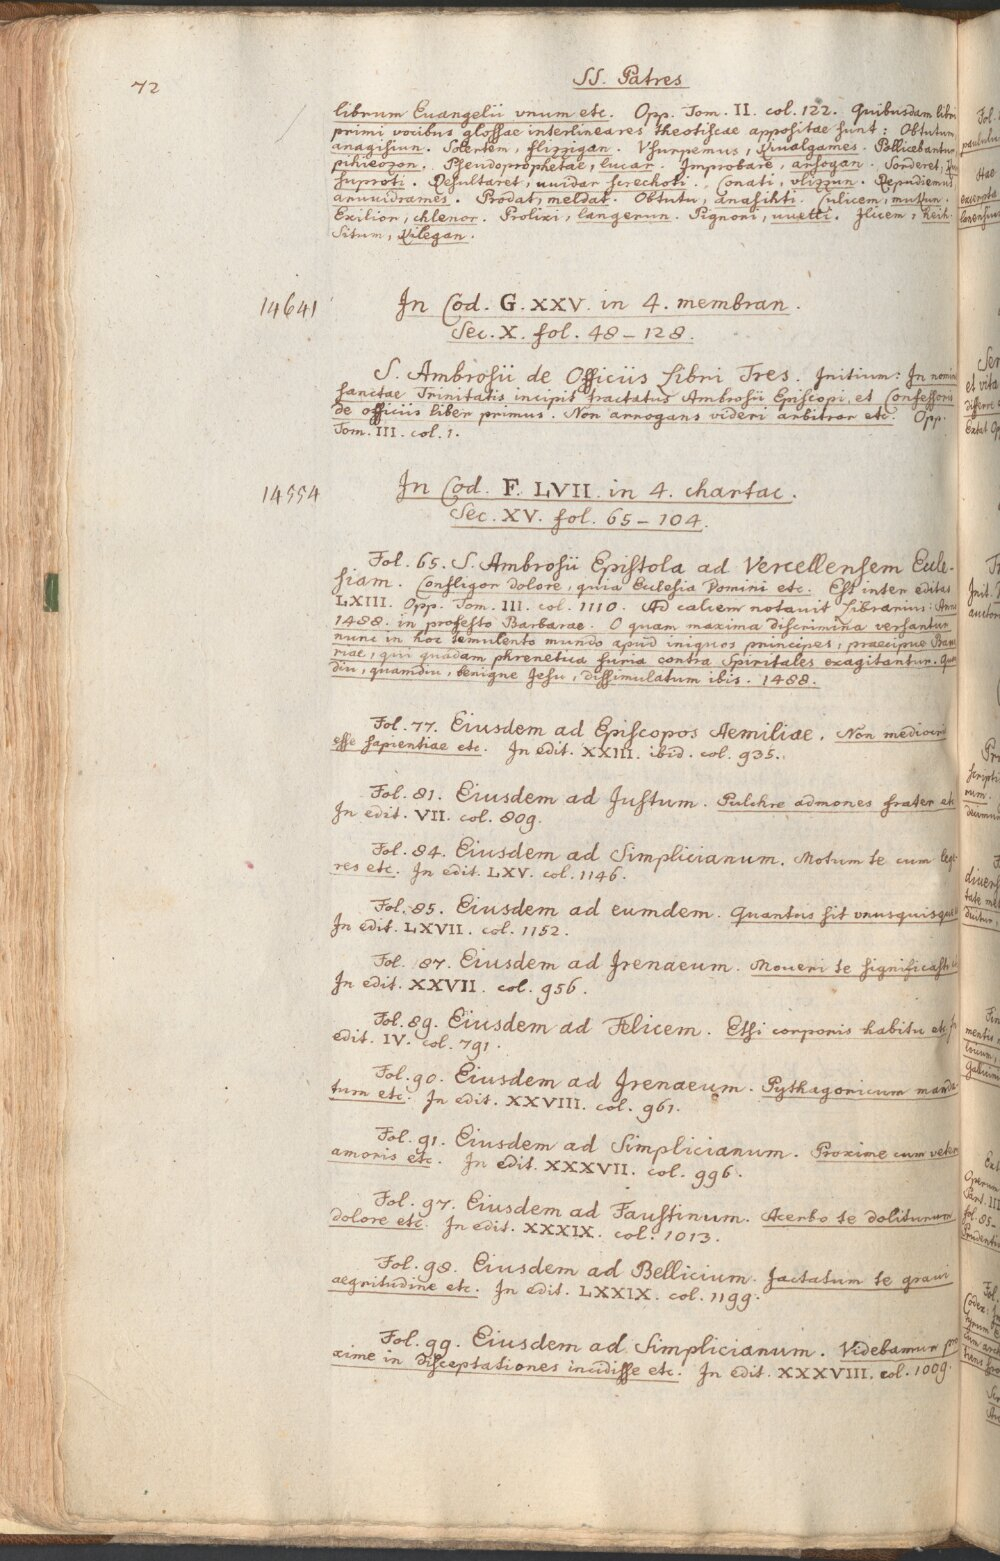 72
SS. Patres
librum Euangelii vnum etc. Opp. Tom. II. col. 122. Quibusdam libri
primi vocibus glossae interlineares theotiscae appositae sunt: Obtutum,
anagisiun. Solertem, flizzigan. Vsurpemus, Kiualgames. Pollicebantur,
pihieozon. Pseudoprophetae, lucari. Improbare, arsogan. Sorderet,
suproti. Resultaret, uuidar screchoti. Conati, vlizzun. Repudiemus
aruuidrames. Prodat, meldat. Obtutu, anasihti. Culicem, mukun.
Exilior, chlenor. Prolixi, langerun. Pignori, uuetti. Ilicem, heih.
Situm, Kilegan.
14641
In Cod. G. XXV. in 4. membran.
Sec. X. fol. 48-128.
S. Ambrosii de Officiis Libri Tres. Initium: In nomin
sanctae Trinitatis incipit tractatus Ambrosii Episcopi, et Confessoris
de officiis liber primus. Non arrogans videri arbitror etc. Opp.
Tom. III. col. 1.
14554
In Cod. F. LVII. in 4. chartac.
Sec. XV. fol. 65-104.
Fol. 65. S. Ambrosii Epistola ad Vercellensem Eccle-
siam. Confligor dolore, quia Ecclesia Domini etc. Est inter editas
LXIII. Opp. Tom. III. col. 1110. Ad calcem notauit Librarius: Anno
1488. in profesto Barbarae. O quam maxima discrimina versantur
nunc in hoc temulento mundo apud iniquos principes, praecipue Baua
riae, qui quadam phrenetica furia contra Spiritales exagitantur. Quam
diu, quamdiu, benigne Jesu, dissimulatum ibis. 1488.
Fol. 77. Eiusdem ad Episcopos Aemiliae. Non mediocris
esse sapientiae etc. In edit. XXIII. ibid. col. 935.
Fol. 81. Eiusdem ad Justum. Pulchre admones frater etc
In edit. VII. col. 809.
Fol. 84. Eiusdem ad Simplicianum. Motum te cum lege-
res etc. In edit. LXV. col. 1146.
Fol. 85. Eiusdem ad eumdem. Quantus sit vnusquisque
In edit. LXVII. col. 1152.
Fol. 87. Eiusdem ad Irenaeum. Moueri te significasti
In edit. XXVII. col. 956.
Fol. 89. Eiusdem ad Felicem. Etsi corporis habitu etc
edit. IV. col. 791.
Fol. 90. Eiusdem ad Irenaeum. Pythagoricum manda-
tum etc. In edit. XXVIII. col. 961.
Fol. 91. Eiusdem ad Simplicianum. Proxime cum veteris
amoris etc. In edit. XXXVII. col. 996.
Fol. 97. Eiusdem ad Faustinum. Acerbo te doliturum
dolore etc. In edit. XXXIX. col. 1013.
Fol. 98. Eiusdem ad Bellicium. Jactatum te graui
aegritudine etc. In edit. LXXIX. col. 1199.
Fol. 99. Eiusdem ad Simplicianum. Videbamur pro
xime in disceptationes incidisse etc. In edit. XXXVIII. col. 1009.